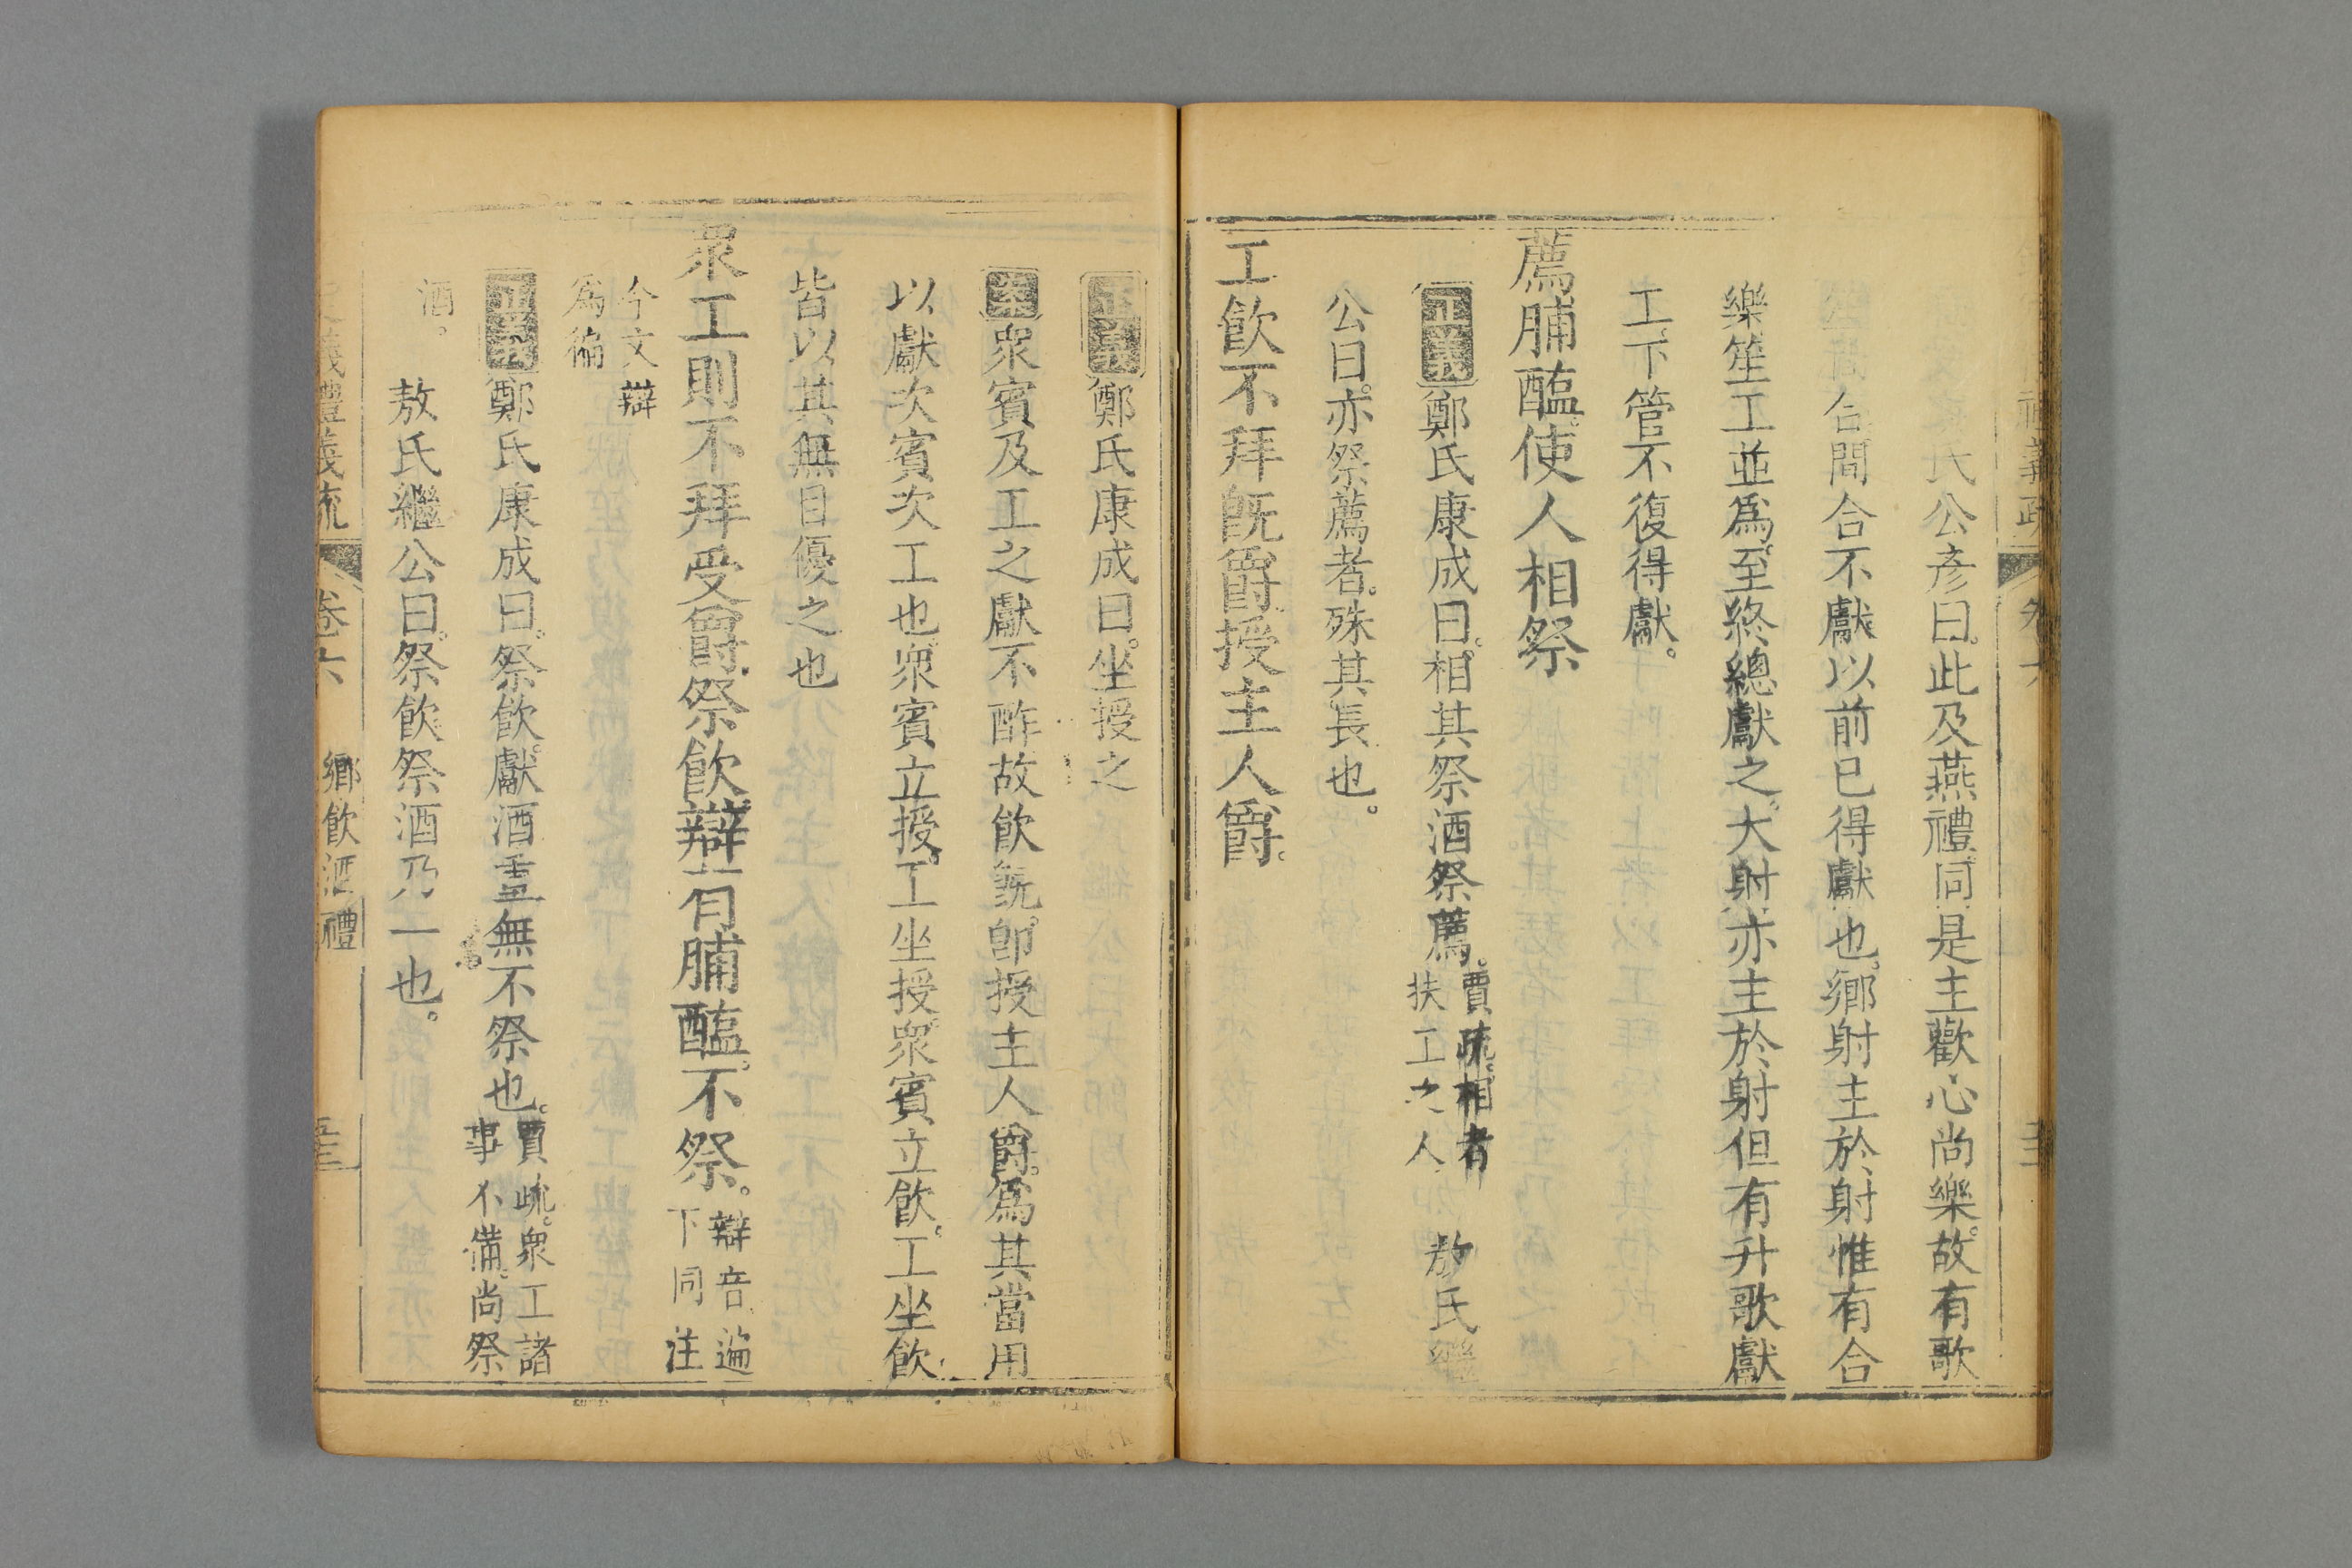 禮義疏 卷六
氏公彥曰。此及燕禮同是主歡心尚樂。故有歌
合間合不獻以前已得獻也。鄉射主於射惟有合
樂笙工並爲。至終總獻之。大射亦主於射但有升歌獻
工。下管不復得獻。
薦脯醢。使人相祭
正義鄭氏康成曰。相其祭酒祭薦。賈疏。相者扶工之人 敖氏繼
公曰。亦祭薦者。殊其長也。
工飲不拜旣爵。授主人爵。
正義鄭氏康成曰。坐授之
衆賓及工之獻不酢故飲旣。卽授主人爵。爲其當用
以獻次賓次工也。衆賓立授。工坐授衆賓立飲。工坐飲
皆以其無目優之也
衆工則不拜受爵。祭飲。辯有脯醢。不祭。辯音遍下同注
今文辯爲徧
正義鄭氏康成曰。祭飲。獻酒重無不祭也。賈疏。衆工諸事不備。尚祭
酒。 敖氏繼公曰。祭飲祭酒乃一也。
義禮義疏 卷六 鄉飲酒禮